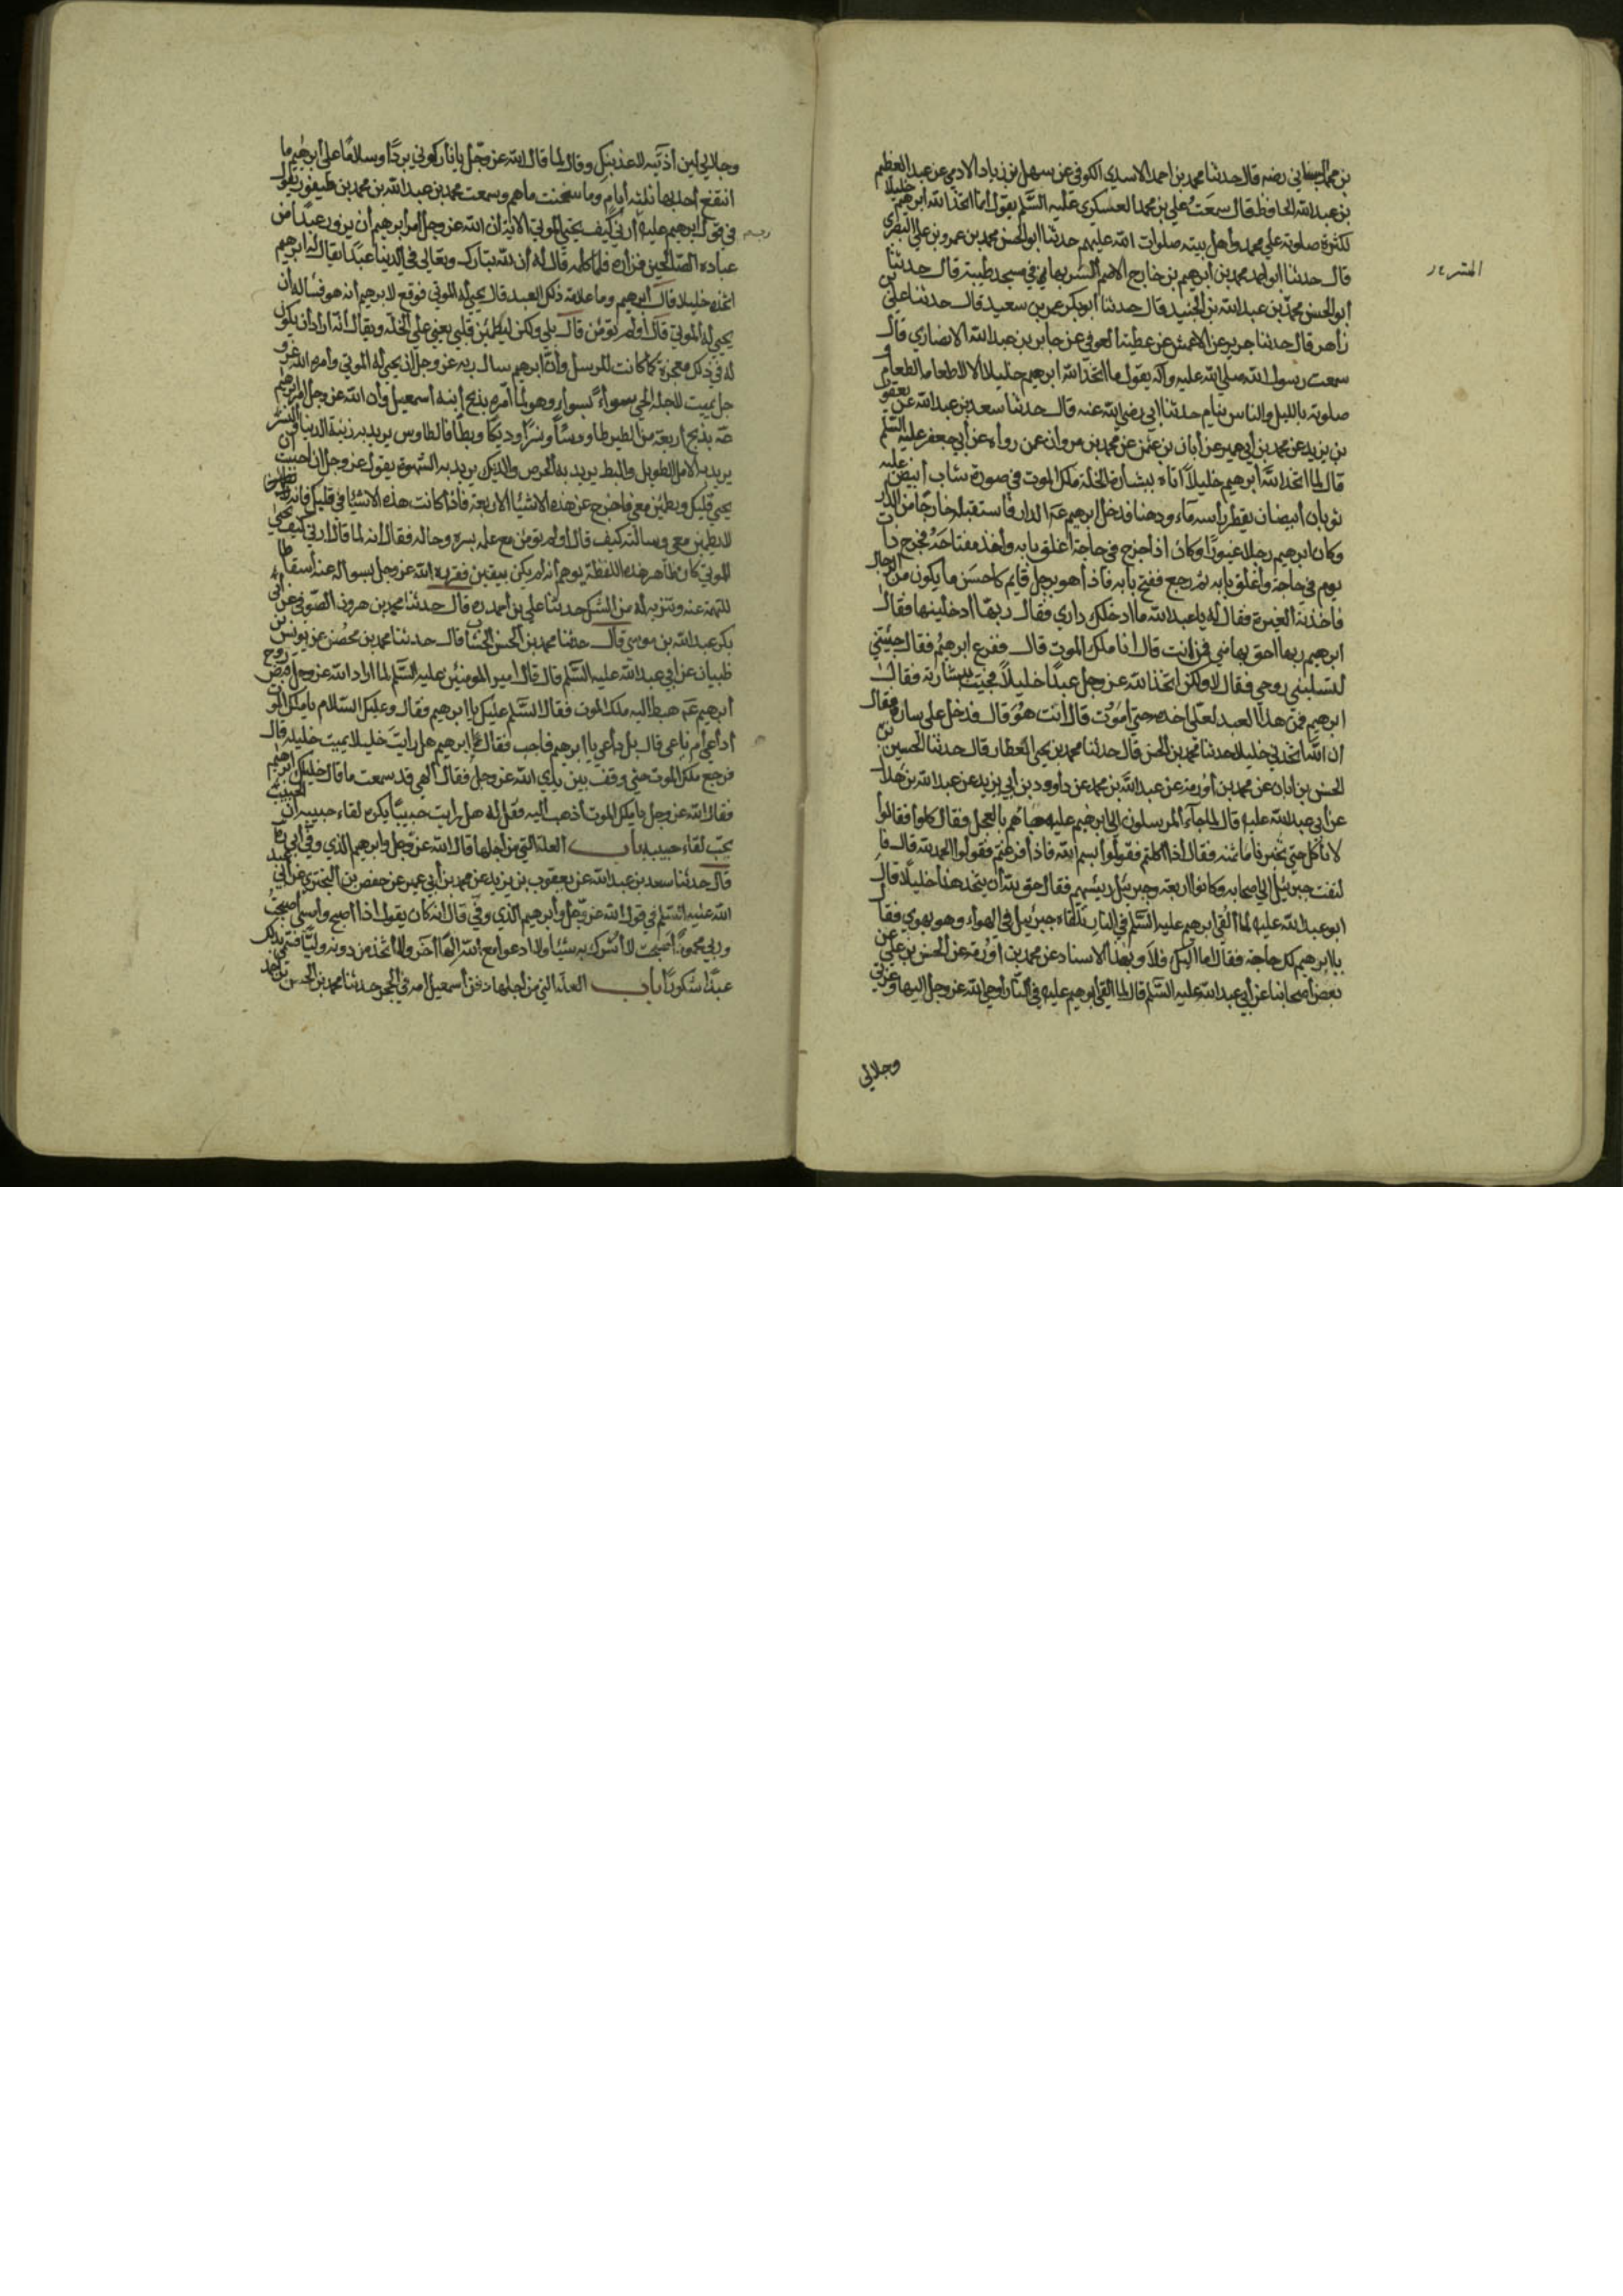 بن محمد الشيباني رضه قال حدثنا محمد بن احمد الاسدي الكوفي عن سهل بن زياد الادمي عن عبد العظيم
بن عبد الله الحافظ قال سمعت علي بن محمد العسكري عليه السلم يقول انما اتخذ الله ابرهيم خليلا
لكثرة صلوته علي محمد واهل بيته صلوات الله عليهم حدثنا ابو الحسن محمد بن عمرو بن علي البصري
قال حدثنا ابو احمد محمد بن ابرهيم بن خارج الاصم البستي بها في مسجد طيبة قال حدثنا
المتبر
ابو الحسن محمد بن عبد الله بن الجنيد قال حدثنا ابو بكر عمرو بن سعيد قال حدثنا علي بن
زاهر قال حدثنا جرير عن الاعمش عن عطية العوفي عن جابر بن عبد الله الانصاري قال
سمعت رسول الله صلي الله عليه واله يقول ما اتخذ الله ابرهيم خليلا الا لاطعامه الطعام و
صلوته بالليل والناس نيام حدثنا ابي رضي الله عنه قال حدثنا سعد بن عبد الله عن يعقو
بن يزيد عن محمد بن ابي عمير عن ابان بن عثمن عن محمد بن مروان عمن رواه عن ابي جعفر عليه السلم
قال لما اتخذ الله ابرهيم خليلا اتاه ببشارة الخلة ملك الموت في صورة شاب ابيض عليه
ثوبان ابيضان يقطر راسه ماء ودهنا فدخل ابرهيم عم الدار فاستقبله خارجا من الدار
وكان ابرهيم رجلا غيورا وكان اذا خرج في حاجة اغلق بابه واخذ مفتاحه فخرج ذات
يوم في حاجة واغلق بابه ثم رجع ففتح بابه فاذا هو برجل قايم كاحسن ما يكون من الرجال
فاخذته الغيرة فقال له يا عبد الله ما ادخلك داري فقال ربها ادخلنيها فقال
ابرهيم ربها احق بها مني فمن انت قال انا ملك الموت قال ففزع ابرهيم فقال جئتني
لتسلبني روحي فقال لا ولكن اتخذ الله عز وجل عبدا خليلا فجئت ببشارته فقال
ابرهيم فمن هذا العبد لعلي اخدمه حتي اموت قال انت هو قال فدخل علي سارة فقال
ان الله اتخذني خليلا حدثنا محمد بن الحسن قال حدثنا محمد بن يحيي العطار قال حدثنا الحسين بن
الحسن بن ابان عن محمد بن اورمة عن عبد الله بن محمد عن داوود بن ابي يزيد عن عبد الله بن هلال
عن ابي عبد الله عليه قال لما جاء المرسلون الي ابرهيم عليه جاءهم بالعجل فقال كلوا فقالوا
لا ناكل حتي تخبرنا ما ثمنه فقال اذا اكلتم فقولوا بسم الله فاذا فرغتم فقولوا الحمد لله قال فا
لتفت جبرئيل الي اصحابه وكانوا اربعة وجبرئيل رئيسهم فقال حق لله ان يتخذ هذا خليلا قال
ابو عبد الله عليه لما القي ابرهيم عليه السلم في النار تلقاه جبرئيل في الهواء وهو يهوي فقال
يا ابرهيم لك حاجة فقال اما اليك فلا وبهذا الاسناد عن محمد بن اورمة عن الحسن بن علي عن
بعض اصحابنا عن ابي عبد الله عليه السلم قال لما القي ابرهيم عليه في النار اوحي الله عز وجل اليها وعزتي
وجلالي
وجلالي لئن اذيتيه لاعذبنك وقال لما قال الله عز وجل يا نار كوني بردا وسلاما علي ابرهيم ما
انتفع احد بها ثلثه ايام وما سخنت ماءهم وسمعت محمد بن عبد الله بن محمد بن طيفور يقول
في قول ابرهيم عليه ارني كيف يحيي الموتي الاية ان الله عز وجل امر ابرهيم ان يزور عبدا من
عباده الصالحين فزاره فلما كلمه قال له ان لله تبارك وتعالي في الدنيا عبدا يقال له ابرهيم
اتخذه خليلا قال ابرهيم وما علامة ذلك العبد قال يحيي له الموتي فوقع لابرهيم انه هو فساله ان
يحيي له الموتي قال اولم تؤمن قال بلي ولكن ليطمئن قلبي يعني علي الخلة ويقال انه اراد ان يكون
له في ذلك معجزة كما كانت للرسل وان ابرهيم سال ربه عز وجل ان يحيي له الموتي وامره الله عز و
جل يميت لاجله الحي سواء بسواء وهو لما امره بذبح ابنه اسمعيل وان الله عز وجل امر ابرهيم
عم بذبح اربعة من الطير طاووسا ونسرا وديكا وبطا فالطاوس يريد به زينة الدنيا والنسر
يريد به الامل الطويل والبط يريد به الحرص والديك يريد به الشهوة يقول عز وجل ان احببت ان
يحيي قلبك ويطمئن معي فاخرج عن هذه الاشياء الاربعة فاذا كانت هذه الاشياء في قلبك فانه
لا يطمئن معي وسالته كيف قال اولم تؤمن مع علمه بسره وحاله فقال انه لما قال ارني كيف تحيي
الموتي كان ظاهر هذه اللفظة يوهم انه لم يكن بيقين فقرره الله عز وجل بسواله عنه اسقاطا
للتهمة عنه وتنزيها له من الشك حدثنا علي بن احمد ره قال حدثنا محمد بن هرون الصوفي عن ابي
بكر عبد الله بن موسي قال حدثنا محمد بن الحسن الخشاب قال حدثنا محمد بن محصن عن يونس بن
ظبيان عن ابي عبد الله عليه السلم قال قال امير المومنين عليه السلم لما اراد الله عز وجل قبض روح
ابرهيم عم هبط اليه ملك الموت فقال السلم عليك يا ابرهيم فقال وعليك السلام يا ملك الموت
اداعي ام ناعي قال بل داعي يا ابرهيم فاجب فقال ابرهيم هل رايت خليلا يميت خليله قال
فرجع ملك الموت حتي وقف بين يدي الله عز وجل فقال الهي قد سمعت ما قال خليلك ابرهيم
فقال الله عز وجل يا ملك الموت اذهب اليه فقل له هل رايت حبيبا يكره لقاء حبيبه ان الحبيب
يحب لقاء حبيبه باب العلة التي من اجلها قال الله عز وجل وابرهيم الذي وفي ابي ره
قال حدثنا سعد بن عبد الله عن يعقوب بن يزيد عن محمد بن ابي عمير عن حفص بن البختري عن ابي عبد
الله عليه السلم في قول الله عز وجل وابرهيم الذي وفي قال انه كان يقول اذا اصبح وامسي اصبحت
وربي محمود اصبحت لا اشرك به شيئا ولا ادعو مع الله الها اخر ولا اتخذ من دونه وليا فسمي بذلك
عبدا شكورا باب العلة التي من اجلها دفن اسمعيل امه في الحجر حدثنا محمد بن الحسن بن احمد